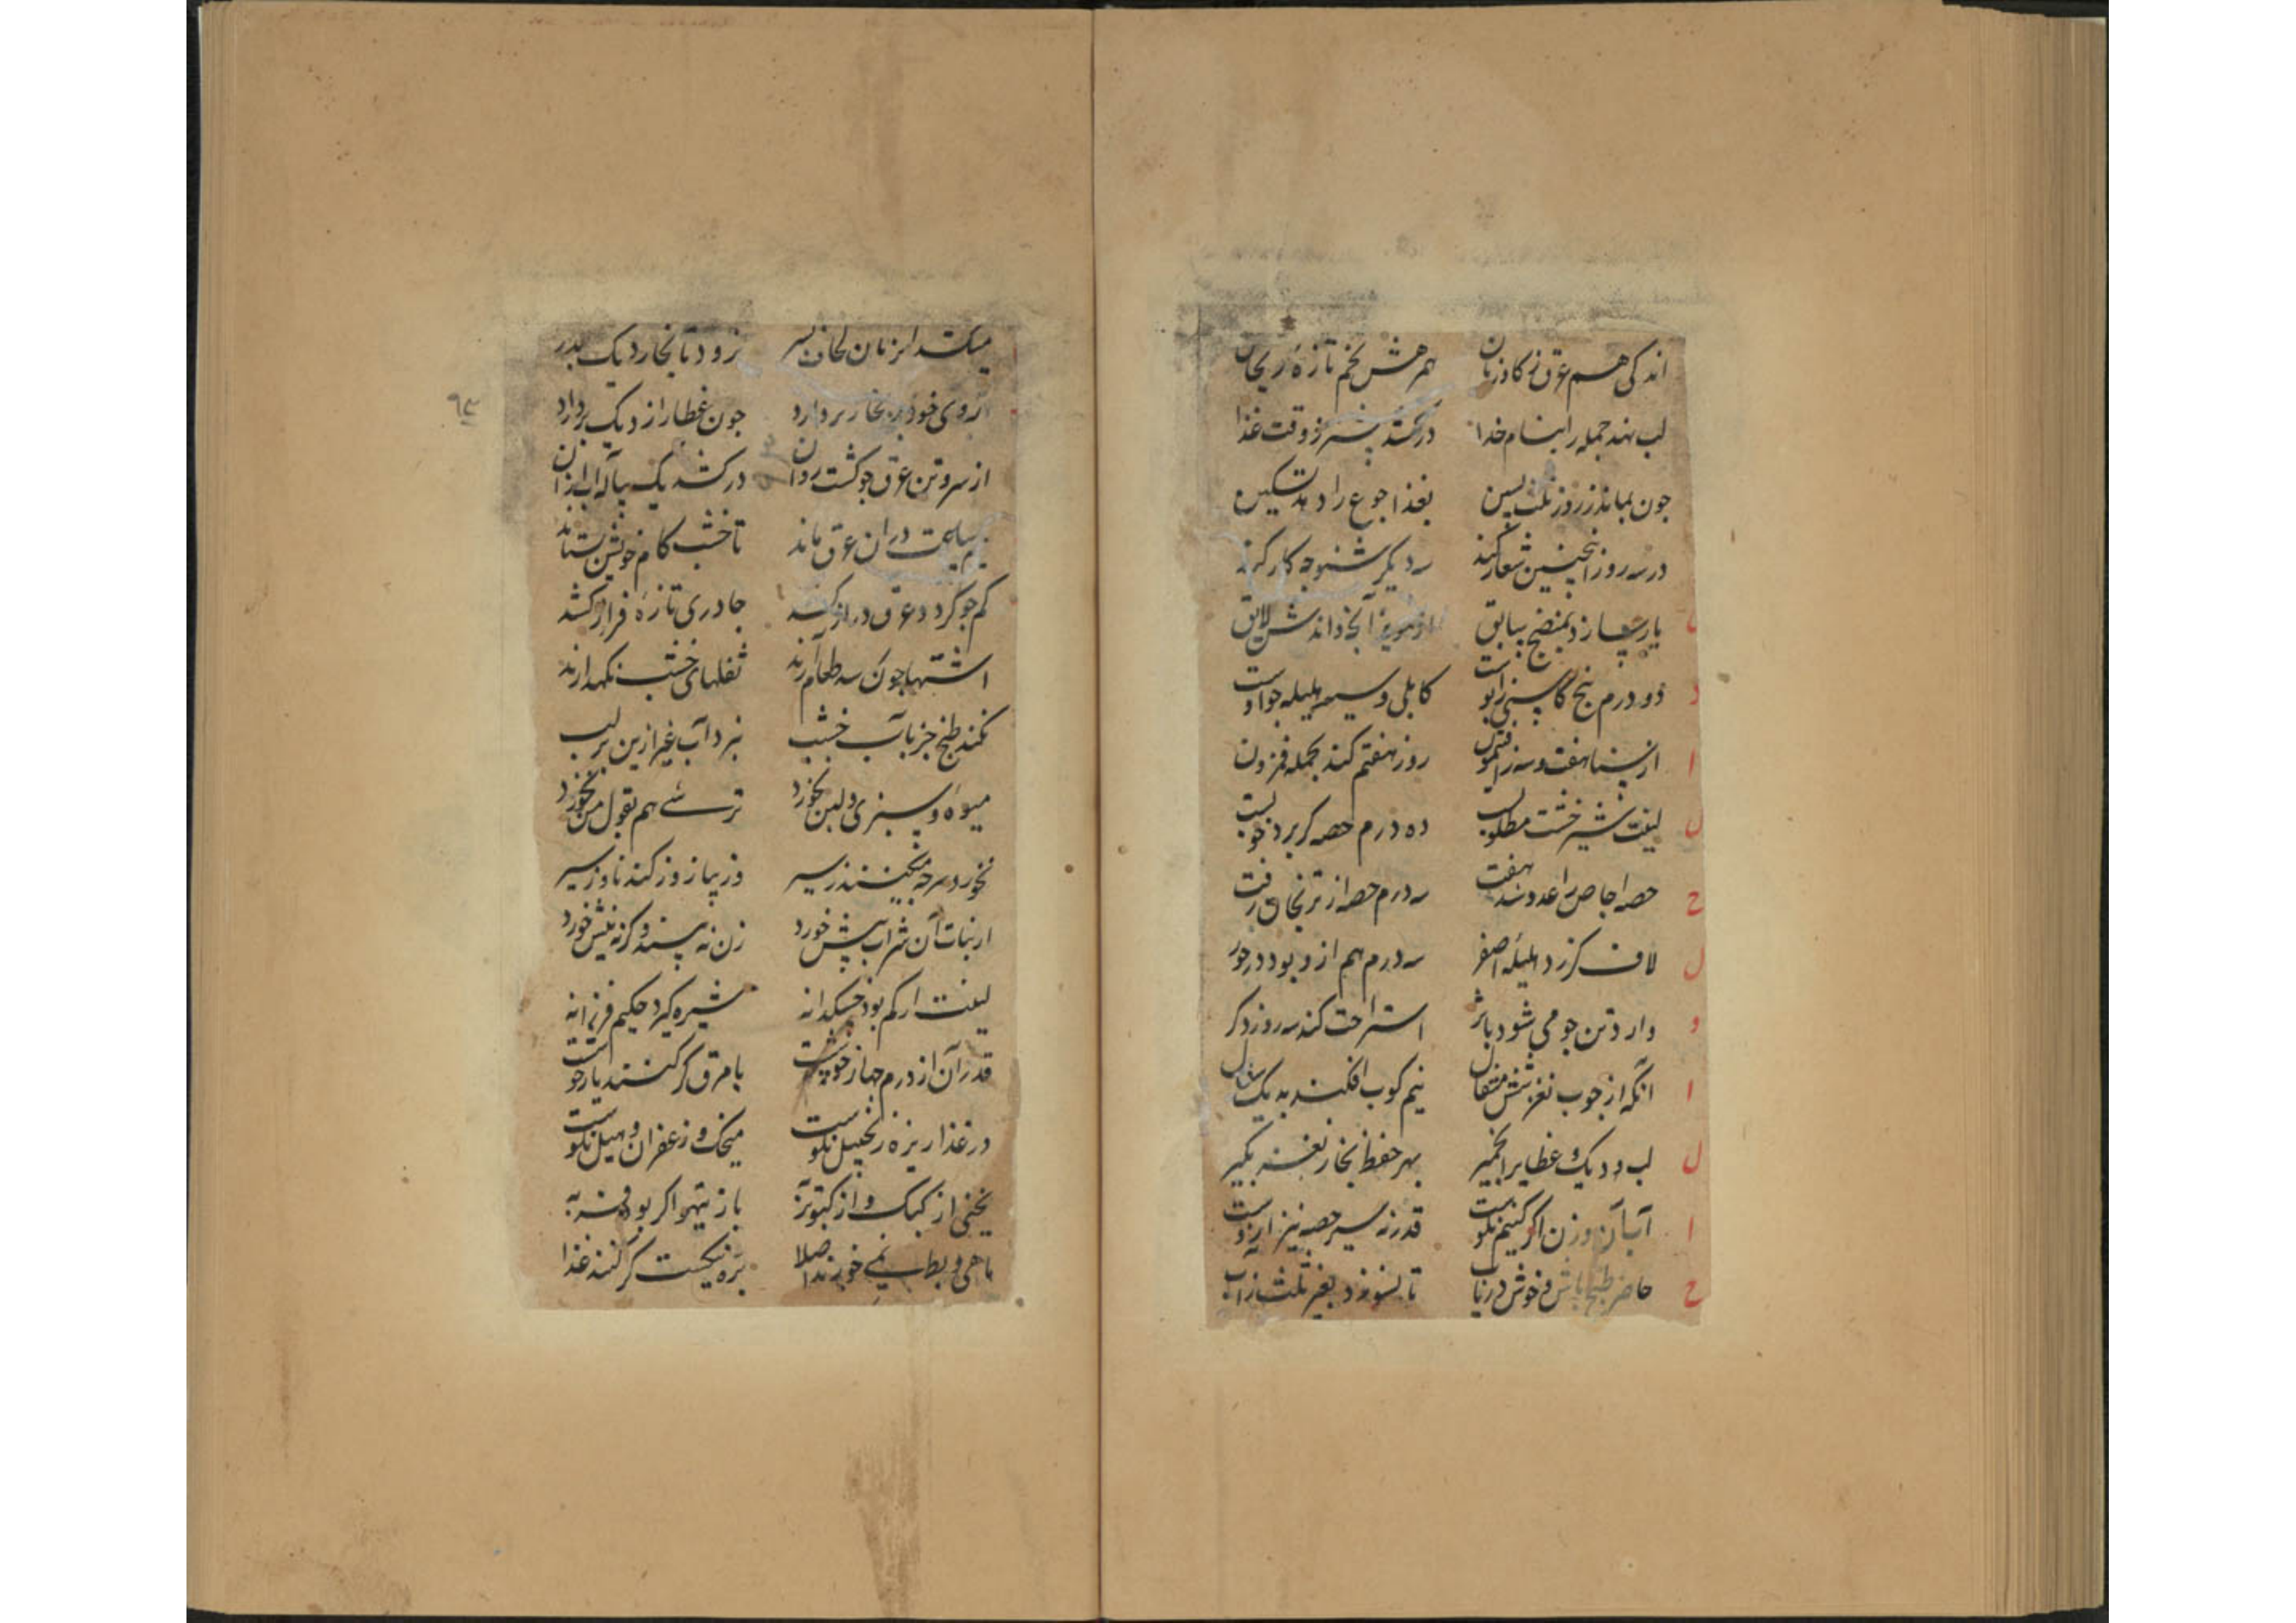 اندکی هم عرق ز کاوزبان همرهش تخم تازهٔ ریحان
لب نهد جمله را بنام خدا درکشد پیشتر ز وقت غذا
جون بماند ز روز ثلث پسین بغذا جوع را دهد تسکین
در سه روز انجنین شعار کند سه دیکر شنو جه کار کند
یار سازد بمنضج سابق آنجه داند لایق
دو درم بیخ کاسنی کابلی و سیه هلیله جو اوست
از سنا هفت و سه ز افتیمون روز هفتم کند بجمله فزون
لیفت شیرخشت مطلوب ده درم حصه کر برد خوبست
حصه اجاص را عدد شد هفت سه درم حصه از ترنجان رفت
لاف کر زد هلیلهٔ اصفر سه درم هم ازو بود در خور
وارد تن جو می شود باثر استراحت کند سه روز دکر
آنکه از جوب نغز شش مثقال نیم کوب افکند به یک
لب دو دیک و غطا برا بخمیر بهر حفظ بخار نغز بکیر
آب آن وزن اکر کنیم نکوست قدر نه سیر حصه نیز ازوست
حاضر طبخ باش و خوش دریاب تا بسوزد بغیر ثلث از آب
میکشد ان زمان لحاف بسر نزود تا بخار دیک بدر
روی خود بر بخار بردارد جون غطا را ز دیک بردارد
از سر و تن عرق جو کشت روان درکشد یک پیاله اب از آن
نیم ساعت در ان عرق ماند تا خشب کام خویش بستاند
کم جو کردد عرق دراز کشد جادری تازه فراز کشد
اشتها جون سه طعام آرند ثفلهای خشب نکهدارند
نکند طبخ جز بآب خشب نبرد آب غیر ازین بر لب
میوه و سبزی و لبن نخورد ترشی هم بقول من نخورد
نخورد هرجه میکنند ز سیر وز پیاز و ز کندنا و ز سیر
از نبات آن شراب پیش خورد زن نه بیند و کرنه نیش خورد
لیفت ار کم بود خسکدانه شیره کیرد حکیم فرزانه
قدر آن از درم جهار خوشست با مرق کر کنند یار خوشست
در غذا ریزه زنجبیل نکوست میخک و زعفران و هیل نکوست
یخنی از کبک و از کبوتر به باز تیهو اکر بود فربه
ماهی و بط نمی خورند اصلا بره نیکست کر کنند غذا